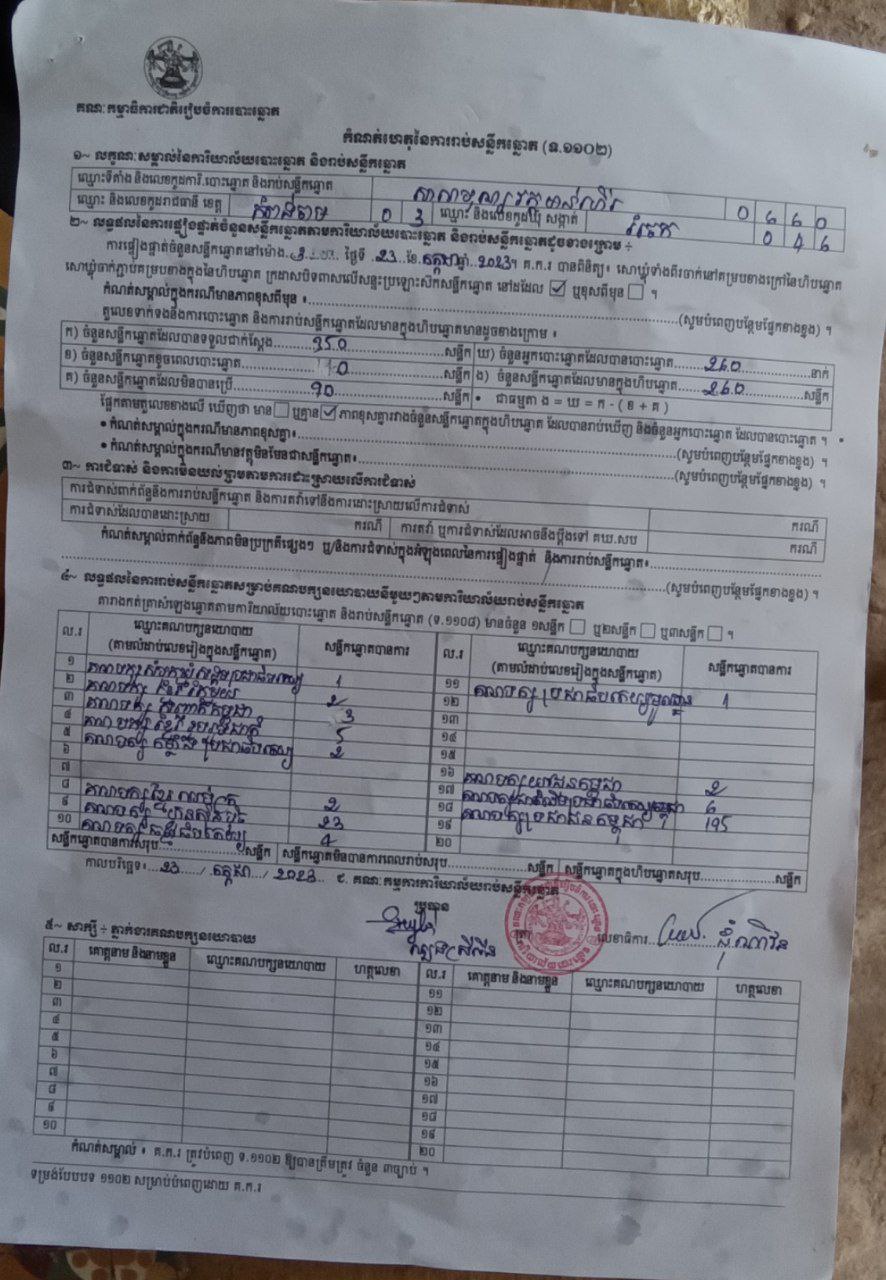 គណៈកម្មាធិការជាតិរៀបចំការបោះឆ្នោត
កំណត់ហេតុនៃការរាប់សន្លឹកឆ្នោត (ទ.១១០២)
១~ លក្ខណៈសម្គាល់នៃការិយាល័យបោះឆ្នោត និងរាប់សន្លឹកឆ្នោត
ឈ្មោះទីតាំង និងលេខកូដការិ.បោះឆ្នោត និងរាប់សន្លឹកឆ្នោត 0 6 6 0
ឈ្មោះ និងលេខកូដរាជធានី ខេត្ត កំពង់ចាម 0 3 ឈ្មោះ និងលេខកូដឃុំ សង្កាត់ 0 4 6
២~ លទ្ធផលនៃការផ្ទៀងផ្ទាត់ចំនួនសន្លឹកឆ្នោតតាមការិយាល័យបោះឆ្នោត និងរាប់សន្លឹកឆ្នោតដូចខាងក្រោម ÷
ការផ្ទៀងផ្ទាត់ចំនួនសន្លឹកឆ្នោតនៅម៉ោង ថ្ងៃទី 23 ខែ កក្កដា ឆ្នាំ 2023។ គ.ក.រ បានពិនិត្យ៖ សោឃ្លុំទាំងពីរចាក់នៅគម្របខាងក្រៅនៃហិបឆ្នោត
សោឃ្លុំចាក់ភ្ជាប់គម្របខាងក្នុងនៃហិបឆ្នោត ក្រដាសបិទពាសលើសន្ទះប្រឡោះស៊កសន្លឹកឆ្នោត នៅដដែល ☑ ឬខុសពីមុន ☐ ។
កំណត់សម្គាល់ក្នុងករណីមានភាពខុសពីមុន ៖ (សូមបំពេញបន្ថែមផ្នែកខាងខ្នង) ។
តួលេខទាក់ទងនឹងការបោះឆ្នោត និងការរាប់សន្លឹកឆ្នោតដែលមានក្នុងហិបឆ្នោតមានដូចខាងក្រោម ៖
ក) ចំនួនសន្លឹកឆ្នោតដែលបានទទួលជាក់ស្តែង 350 សន្លឹក ឃ) ចំនួនអ្នកបោះឆ្នោតដែលបានបោះឆ្នោត 260 នាក់
ខ) ចំនួនសន្លឹកឆ្នោតខូចពេលបោះឆ្នោត 0 សន្លឹក ង) ចំនួនសន្លឹកឆ្នោតដែលមានក្នុងហិបឆ្នោត 260 សន្លឹក
គ) ចំនួនសន្លឹកឆ្នោតដែលមិនបានប្រើ 90 សន្លឹក • ជាធម្មតា ង = ឃ = ក - ( ខ + គ )
ផ្អែកតាមតួលេខខាងលើ ឃើញថា មាន ☐ ឬគ្មាន ☑ ភាពខុសគ្នារវាងចំនួនសន្លឹកឆ្នោតក្នុងហិបឆ្នោត ដែលបានរាប់ឃើញ និងចំនួនអ្នកបោះឆ្នោត ដែលបានបោះឆ្នោត ។
• កំណត់សម្គាល់ក្នុងករណីមានភាពខុសគ្នា៖ (សូមបំពេញបន្ថែមផ្នែកខាងខ្នង) ។
• កំណត់សម្គាល់ក្នុងករណីមានវត្ថុមិនមែនជាសន្លឹកឆ្នោត៖ (សូមបំពេញបន្ថែមផ្នែកខាងខ្នង) ។
៣~ ការជំទាស់ និងការមិនយល់ព្រមតាមការដោះស្រាយលើការជំទាស់
ការជំទាស់ពាក់ព័ន្ធនឹងការរាប់សន្លឹកឆ្នោត និងការតវ៉ាទៅនឹងការដោះស្រាយលើការជំទាស់ ករណី
ការជំទាស់ដែលបានដោះស្រាយ ករណី ការតវ៉ា ឬការជំទាស់ដែលអាចនឹងប្តឹងទៅ គឃ.សប ករណី
កំណត់សម្គាល់ពាក់ព័ន្ធនឹងភាពមិនប្រក្រតីផ្សេងៗ ឬ/និងការជំទាស់ក្នុងអំឡុងពេលនៃការផ្ទៀងផ្ទាត់ និងការរាប់សន្លឹកឆ្នោត៖
(សូមបំពេញបន្ថែមផ្នែកខាងខ្នង) ។
៤~ លទ្ធផលនៃការរាប់សន្លឹកឆ្នោតសម្រាប់គណបក្សនយោបាយនីមួយៗតាមការិយាល័យរាប់សន្លឹកឆ្នោត
តារាងកត់ត្រាសំឡេងឆ្នោតតាមការិយាល័យបោះឆ្នោត និងរាប់សន្លឹកឆ្នោត (ទ.១១០៨) មានចំនួន ១សន្លឹក ☐ ឬ២សន្លឹក ☐ ឬ៣សន្លឹក ☐ ។
ល.រ ឈ្មោះគណបក្សនយោបាយ (តាមលំដាប់លេខរៀងក្នុងសន្លឹកឆ្នោត) សន្លឹកឆ្នោតបានការ ល.រ ឈ្មោះគណបក្សនយោបាយ (តាមលំដាប់លេខរៀងក្នុងសន្លឹកឆ្នោត) សន្លឹកឆ្នោតបានការ
១ 1 ១១ គណបក្ស ប្រជាធិបតេយ្យមូលដ្ឋាន 1
២ គណបក្ស 2 ១២
៣ គណបក្ស 3 ១៣
៤ គណបក្ស 5 ១៤
៥ គណបក្ស កម្លាំងប្រជាធិបតេយ្យ 2 ១៥
៦ ១៦ គណបក្សយុវជនកម្ពុជា 2
៧ ១៧ 6
៨ គណបក្ស 2 ១៨ គណបក្សប្រជាជនកម្ពុជា 195
៩ គណបក្ស ហ្វ៊ុនស៊ិនប៉ិច 23 ១៩
១០ គណបក្ស 4 ២០
សន្លឹកឆ្នោតបានការសរុប សន្លឹក សន្លឹកឆ្នោតមិនបានការពេលរាប់សរុប សន្លឹក សន្លឹកឆ្នោតក្នុងហិបឆ្នោតសរុប សន្លឹក
កាលបរិច្ឆេទ៖ 23 / កក្កដា / 2023 ជ. គណៈកម្មការការិយាល័យរាប់សន្លឹកឆ្នោត
ប្រធាន
លេខាធិការ
៥~ សាក្សី ÷ ភ្នាក់ងារគណបក្សនយោបាយ
ល.រ គោត្តនាម និងនាមខ្លួន ឈ្មោះគណបក្សនយោបាយ ហត្ថលេខា ល.រ គោត្តនាម និងនាមខ្លួន ឈ្មោះគណបក្សនយោបាយ ហត្ថលេខា
១ ១១
២ ១២
៣ ១៣
៤ ១៤
៥ ១៥
៦ ១៦
៧ ១៧
៨ ១៨
៩ ១៩
១០ ២០
កំណត់សម្គាល់ ៖ គ.ក.រ ត្រូវបំពេញ ទ.១១០២ ឱ្យបានត្រឹមត្រូវ ចំនួន ៣ច្បាប់ ។
ទម្រង់បែបបទ ១១០២ សម្រាប់បំពេញដោយ គ.ក.រ